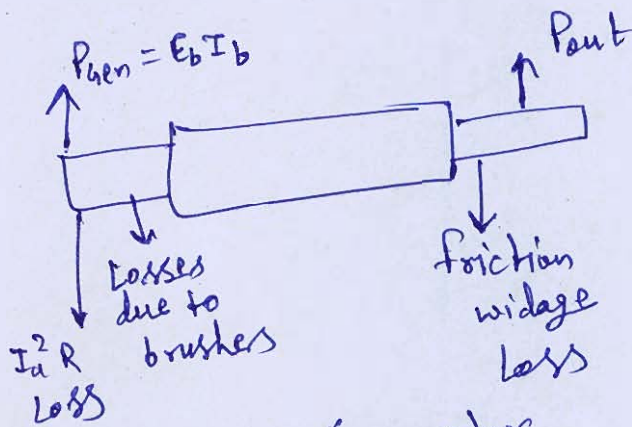 P_gen = E_b I_b
Pout
Losses
due to
brushers
I_a^2 R
Loss
friction
widage
Loss